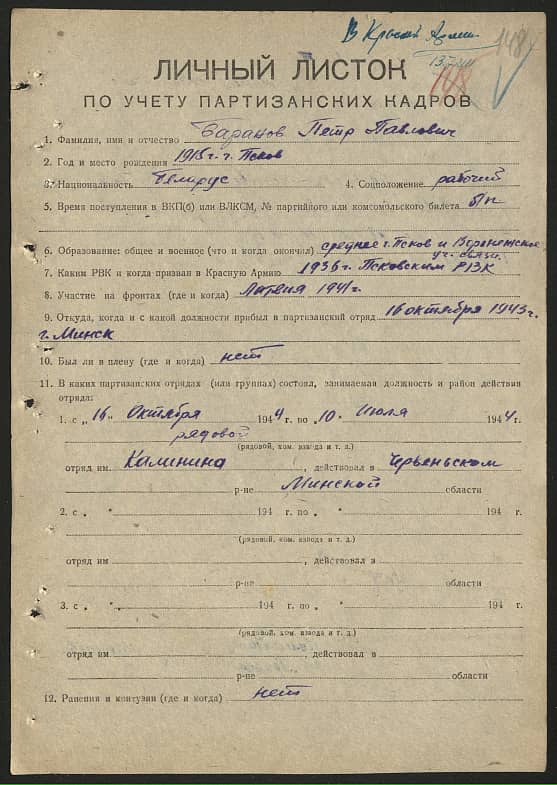 В Красн Арми
148
13.VII
108
ЛИЧНЫЙ ЛИСТОК
ПО УЧЕТУ ПАРТИЗАНСКИХ КАДРОВ
1. Фамилия, имя и отчество Баранов Петр Павлович
2. Год и место рождения 1915г. г. Псков
3. Национальность Беларус 4. Соцположение рабочий
5. Время поступления в ВКП(б) или ВЛКСМ, № партийного или комсомольского билета б/п
6. Образование: общее и военное (что и когда окончил) среднее г. Псков и Воронежское
уч. связи.
7. Каким РВК и когда призван в Красную Армию 1936г. Псковским РВК
8. Участие на фронтах (где и когда) Латвия 1941г.
9. Откуда, когда и с какой должности прибыл в партизанский отряд 16 октября 1943г.
г. Минск
10. Был ли в плену (где и когда) нет
11. В каких партизанских отрядах (или группах) состоял, занимаемая должность и район действия
отряда:
1. с „ 16 " Октября 1944 г. по „ 10 " Июля 1944 г.
рядовой
(рядовой, ком. взвода и т. д.)
отряд им. Калинина, действовал в Червеньском
р-не Минской области
2. с „ " 194 г. по „ " 194 г.
(рядовой, ком. взвода и т. д.)
отряд им , действовал в
р-не области
3. с „ " 194 г. по „ " 194 г.
(рядовой, ком. взвода и т. д.)
отряд им , действовал в
р-не области
12. Ранения и контузии (где и когда) нет